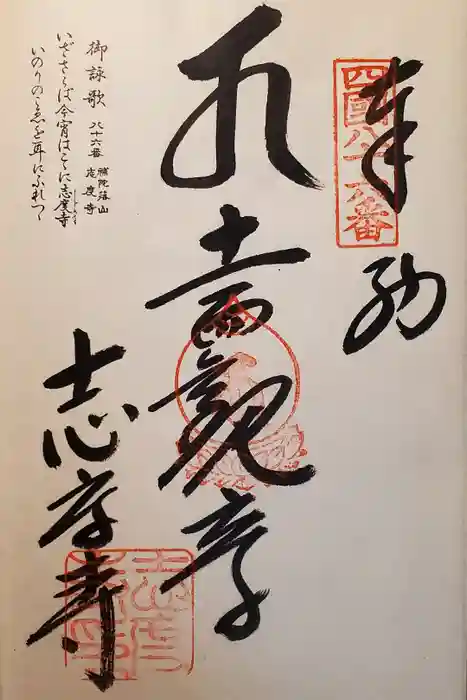 奉納
四國八十六番
大十一面観音
志度寺
御詠歌 八十六番 補陀落山 志度寺
いざさらば今宵はこゝに志度寺
いのりのこゑを耳にふれつゝ